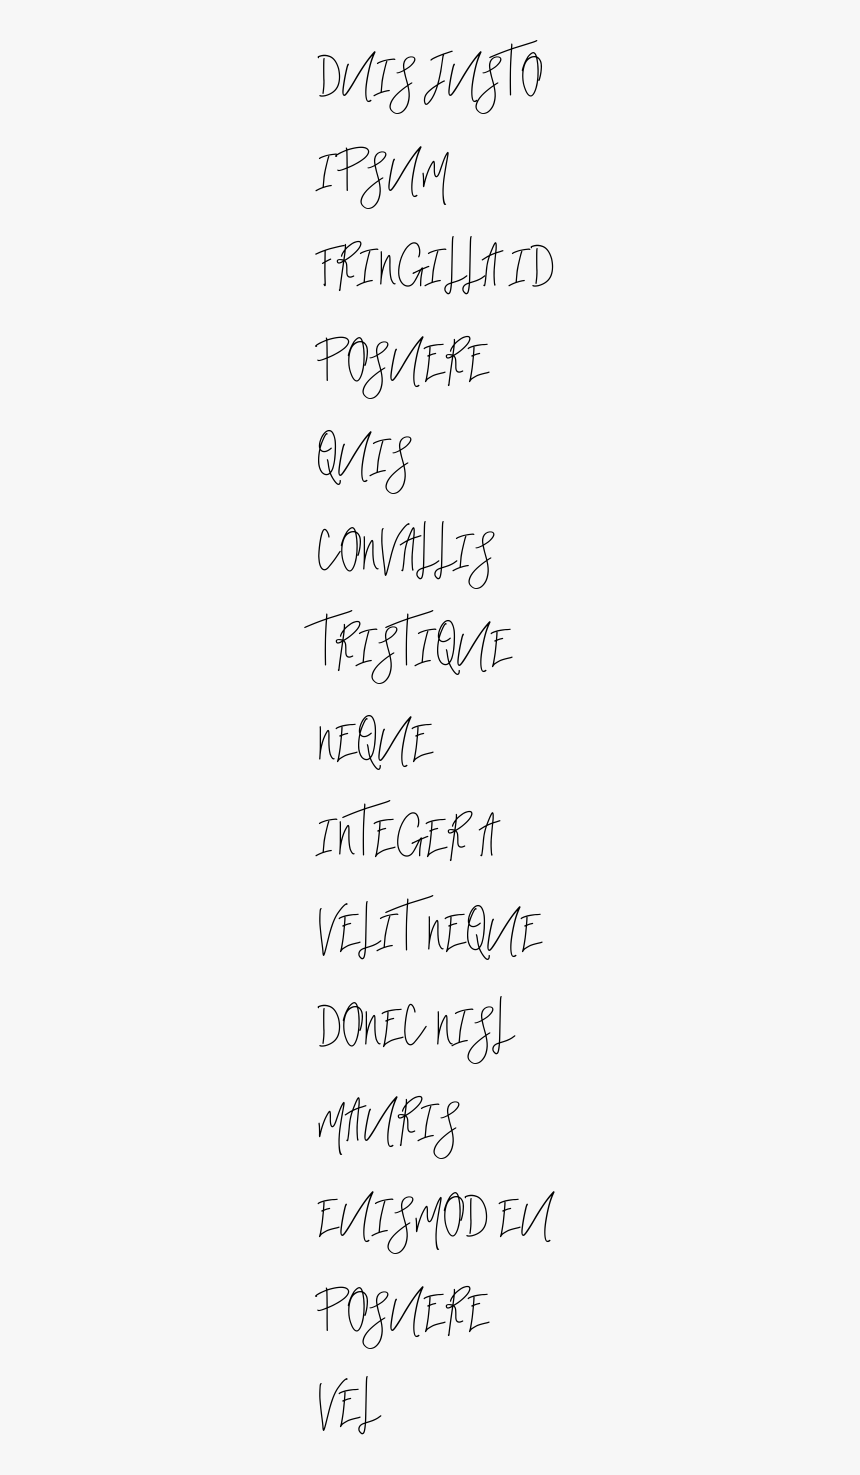 DUIS JUSTO
IPSUM
FRINGILLA ID
POSUERE
QUIS
CONVALLIS
TRISTIQUE
NEQUE
INTEGER A
VELIT NEQUE
DONEC NISL
MAURIS
EUISMOD EU
POSUERE
VEL